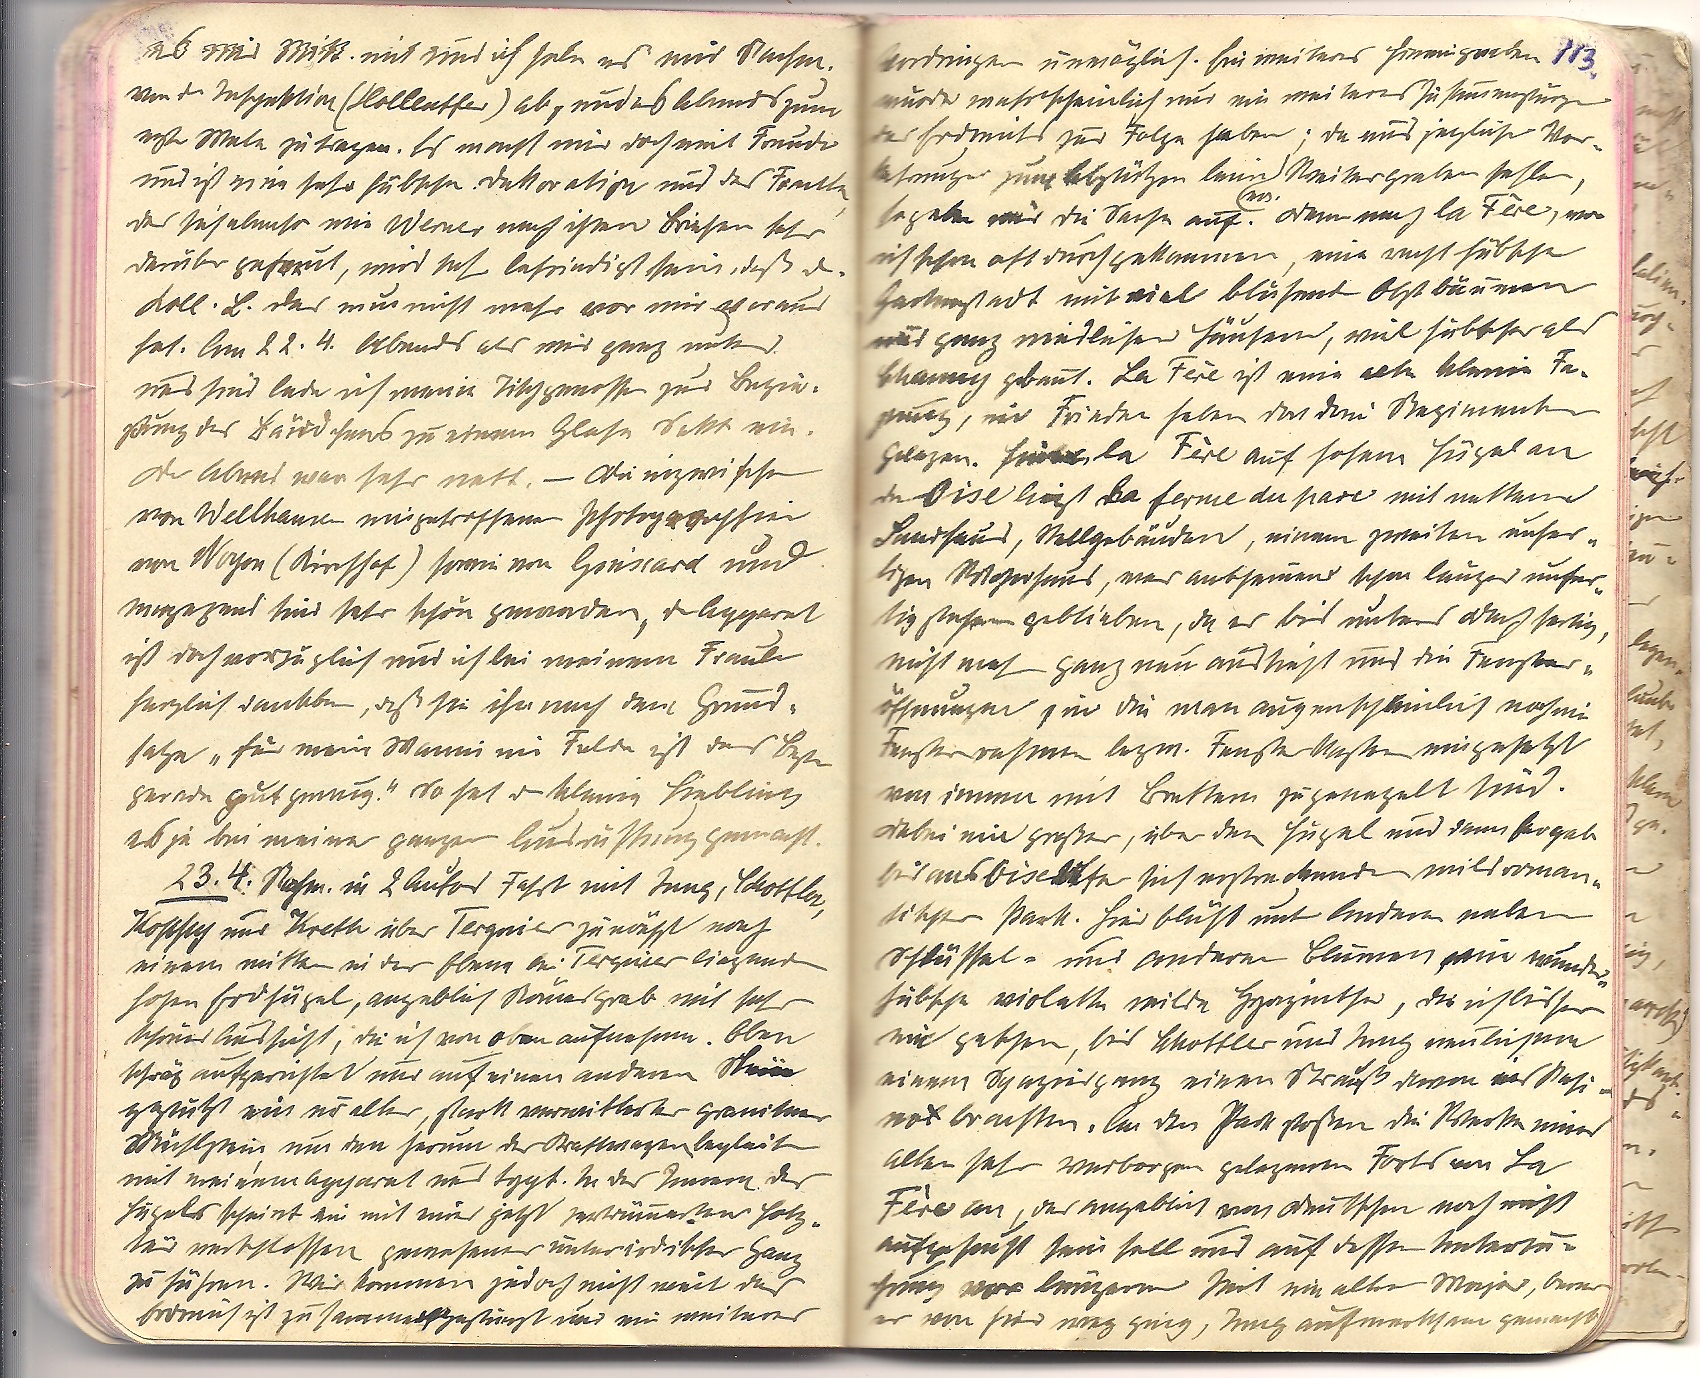 es mir Mitt. mit und ich habe es nur Sachen.
von der Inspektion (Holleuffer) ab, um es Abends zum
ersten Male zu tragen. Es macht mir doch viel Freude
und ist eine sehr hübsche Dekoration und das Frauli,
das ebenso wie Werner nach ihren Briefen sehr
darüber gefreut, wird sehr befriedigt sein, daß d.
Koll. L. das nun nicht mehr vor mir voraus
hat. Am 22.4. Abends als wir ganz unter
uns sind lade ich meine Tischgenossen zur Begie-
ßung des Bändchens zu einem Glase Sekt ein.
Der Abend war sehr nett. – Die inzwischen
von Wellhausen eingetroffenen Photographien
von Noyon (Kirchhof) sowie von Guiscard und
Umgegend sind sehr schön geworden, der Apparat
ist doch vorzüglich und ich bin meinem Frauli
herzlich dankbar, daß sie ihn nach dem Grund-
satze „für mein Manni im Felde ist das Beste
gerade gut genug." So hat der kleine Liebling
es ja bei meiner ganzen Ausrüstung gemacht.
23.4. Nachm. in 2 Autos Fahrt mit Jung, Schottler,
und Krette über Tergnier zunächst nach
einem mitten in der Ebene bei Tergnier liegenden
hohen Erdhügel, angeblich Römergrab mit sehr
schöner Aussicht, die ich von oben aufnehme. Oben
schräg aufgerichtet und auf einen anderen Stein
gestützt ein uralter, stark verwitterter granitner
Mühlstein um den herum der Kraftwagenbegleiter
mit meinem Apparat uns typt. In das Innere des
Hügels scheint ein mit einer jetzt zertrümmerten Holz-
tür verschlossen gewesener unterirdischer Gang
zu führen. Wir kommen jedoch nicht weit das
Erdreich ist zusammengestürzt und ein weiteres
113.
Vordringen unmöglich. Ein weiteres Hineingraben
würde wahrscheinlich nur ein weiteres Zusammenstürzen
des Erdreichs zur Folge haben; da uns jegliche Vor-
kehrungen zum Abstützen beim Weitergraben fehlen,
so geben wir die Sache auf. Dann nach la Fère, wo
ich schon oft durchgekommen, eine recht hübsche
Gartenstadt mit viel blühenden Obstbäumen
und ganz niedlichen Häusern, viel hübscher als
Chauny gebaut. La Fère ist eine alte kleine Fe-
stung, im Frieden haben da drei Regimenter
gelegen. Hinter la Fère auf hohem Hügel an
der Oise liegt La ferme du parc mit nettem
Landhaus, Stallgebäuden, einem zweiten unfer-
tigen Wohnhaus, was anscheinend schon länger unfer-
tig stehen geblieben, da es bis unters Dach fertig,
nicht mehr ganz neu aussieht und die Fenster-
öffnungen in die man augenscheinlich noch nie
Fensterrahmen bezw. Fenster Kasten eingesetzt
von innen mit Brettern zugenagelt sind.
Dabei ein großer, über den Hügel und dann bergab
bis ans Oiseufer sich erstreckender wildroman-
tischer Park. Hier blüht unter Anderem neben
Schlüssel- und anderen Blumen eine wunder-
hübsche violette wilde Hyazinthe, die ich bisher
nie gesehen, bis Schottler und Jung neulich von
einem Spaziergang einen Strauß davon ins Kasi-
no brachten. An den Park stoßen die Werke eines
alten sehr verborgen gelegenen Forts von La
Fère an, das angeblich von Deutschen noch nicht
aufgesucht sein soll und auf dessen Untersu-
chung vor längerer Zeit ein alter Major, bevor
er von hier weg ging, Jung aufmerksam gemacht